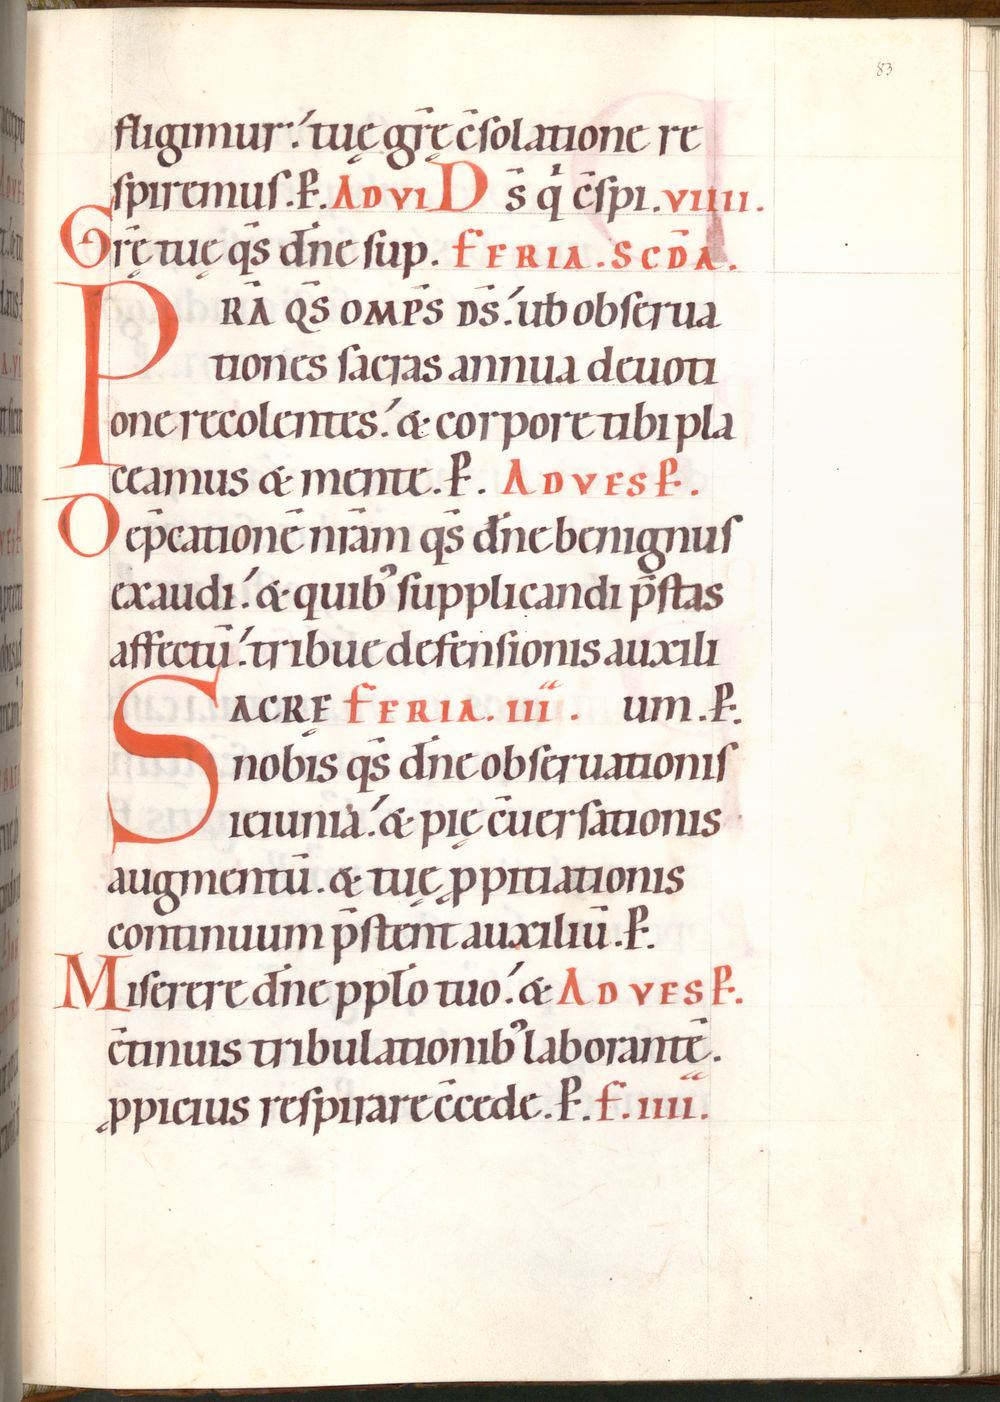 83
fligimur. tuę gr̄ę c̄solatione re
spiremus. P. AD VI D s̄ q́ c̄spi. viiii.
Gr̄ę tuę qs̄ dn̄e sup. FERIA. SCDA.
PRĀ QS̄ OMPS̄ DS̄. ut observa
tiones sacras annua devoti
one recolentes. & corpore tibi pla
ceamus & mente. P. AD VESP.
Dep̄cationē nrām qs̄ dn̄e benignus
exaudi. & quib' supplicandi p̄stas
affectū. tribue defensionis auxili
SACRĘ FERIA. iii. um. P.
nobis qs̄ dn̄e observationis
ieiunia. & pię c̄versationis
augmentū. & tuę ꝓpitiationis
continuum p̄stent auxiliū. P.
Miserere dn̄e pplo tuo. & AD VESP.
c̄tinuis tribulationib' laborantē.
ꝓpicius respirare c̄cede. P. F. iiii.